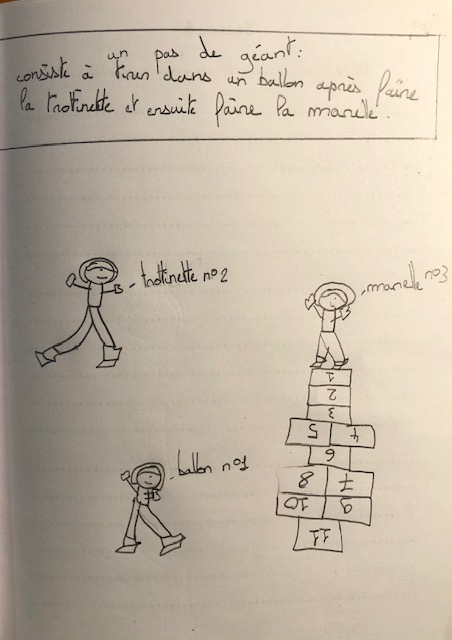 un pas de géant:
consiste à tirer dans un ballon après faire
la trottinette et ensuite faire la marelle.
trottinette n°2
marelle n°3
1
2
3
5 4
6
8 7
10 9
11
ballon n°1